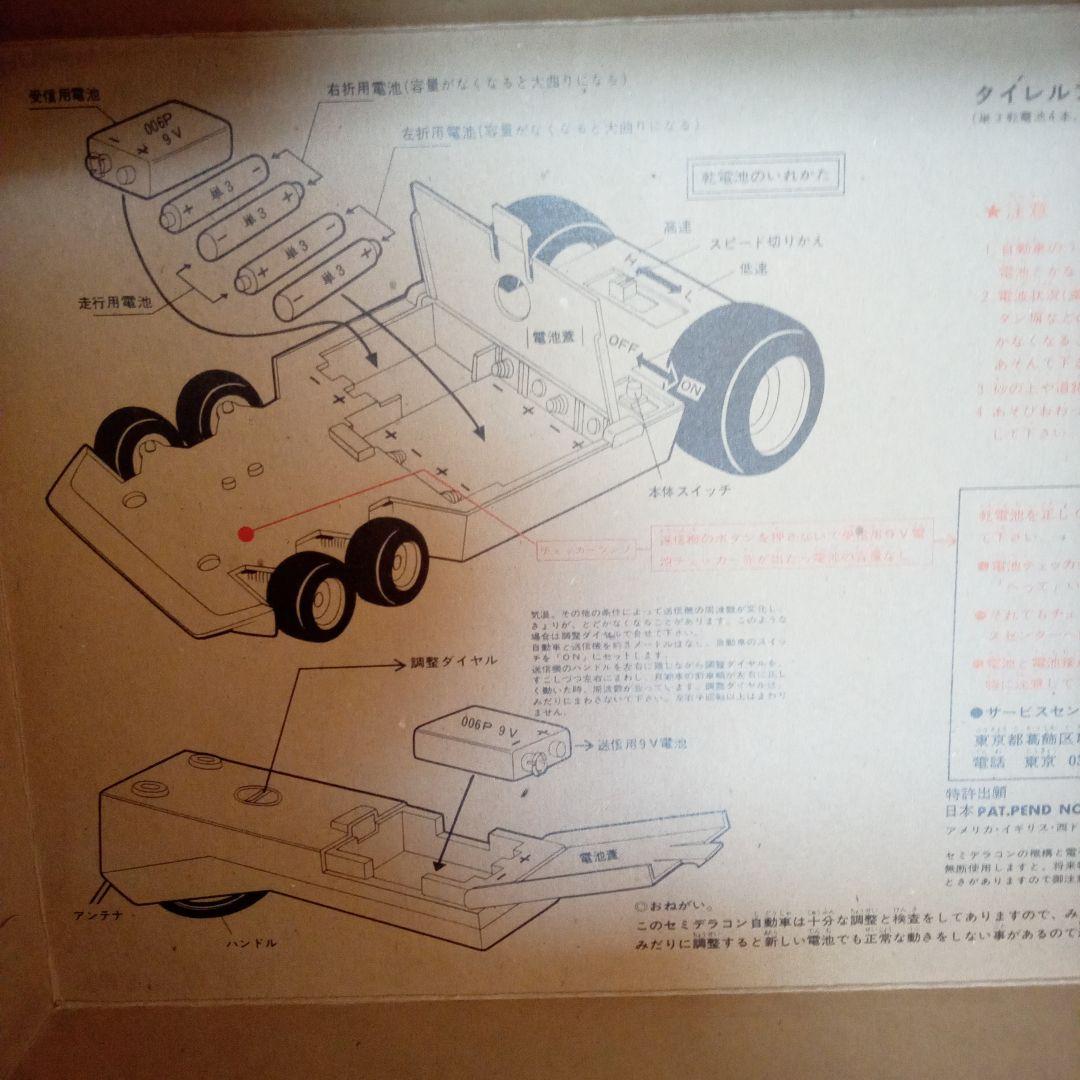 受信用電池
006P
9V
右折用電池(容量がなくなると大曲りになる)
左折用電池(容量がなくなると大曲りになる)
単3
単3
単3
単3
走行用電池
乾電池のいれかた
高速
スピード切りかえ
低速
H
L
電池蓋
OFF
ON
本体スイッチ
タイレル
(単3乾電池4本、
★注意
1 自動車の
電池とかな
2 電波状況
タン塀など
かなくなる
あそんで下さ
3 砂の上や道路
4 あそびおわっ
して下さい
送信機のボタンを押さないで受信用9V電
池チェッカー
気温、その他の条件によって送信機の周波数が変化し、
きょりが、とどかなくなることがあります。このような
場合は調整ダイヤルで合せて下さい。
自動車と送信機を約3メートルはなし、自動車のスイッ
チを「ON」にセットします。
送信機のハンドルを左右に廻しながら調整ダイヤルを、
すこしづつ左右にまわし、自動車の前車輪が左右に正し
く動いた時、周波数が合っています。調整ダイヤルは、
みだりにまわさないで下さい。左右
ません。
乾電池を正し
て下さい。
●電池チェッカ
「へって」い
●それでもチェ
スセンターへ
●電池と電池
特に注意して
●サービスセン
東京都葛飾区
電話 東京 03
調整ダイヤル
006P 9V
送信用9V電池
電池蓋
アンテナ
ハンドル
特許出願
日本 PAT.PEND NO
アメリカ・イギリス・西ド
セミデラコンの機構と電
無断使用しますと、将来
ときがありますので御注
◎おねがい。
このセミデラコン自動車は十分な調整と検査をしてありますので、み
みだりに調整すると新しい電池でも正常な動きをしない事があるので